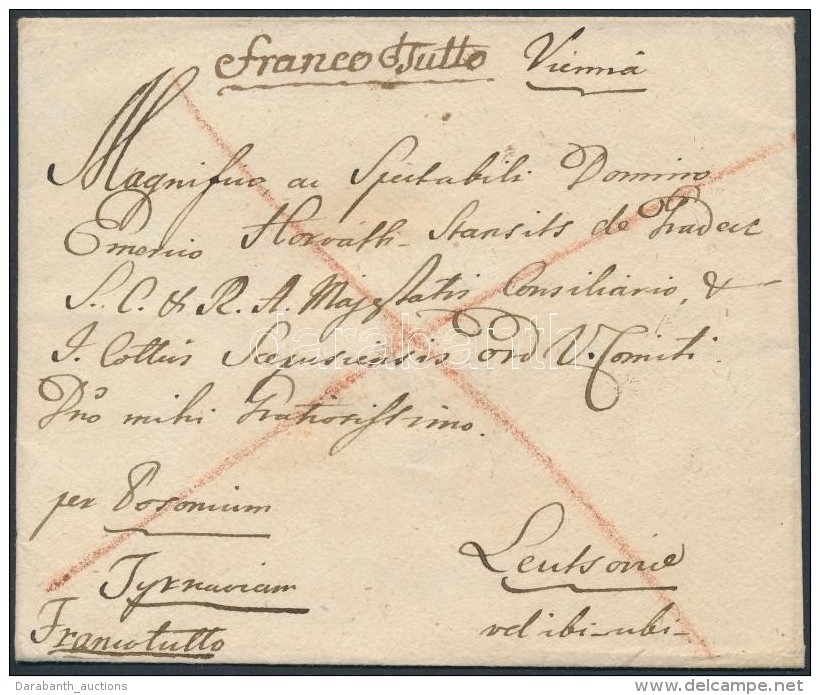 Franco Tutto Vienna
Magnifico ac Spectabili Domino
Emerico Horváth-Stansits de Gradecz
S. C. & R. A. Majestatis Consiliario, &
I. Cottus Scepusiensis Ord V. Comiti
Dno mihi Gratiosissimo.
per Posonium
Tyrnaviam
Franco tutto
Leutsoviæ
vel ibi-ubi-
darabanth
Darabanth_auctions
delcampe.net